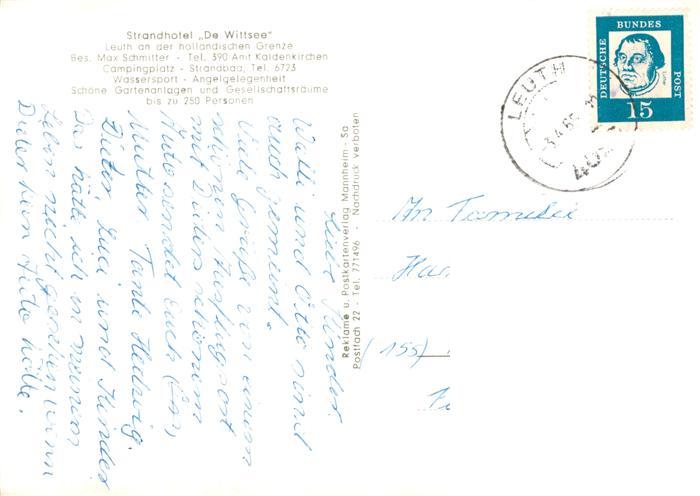 Strandhotel „De Wittsee"
Leuth an der holländischen Grenze
Bes. Max Schmitter - Tel. 390 Amt Kaldenkirchen
Campingplatz - Strandbad, Tel. 6723
Wassersport - Angelgelegenheit
Schöne Gartenanlagen und Gesellschaftsräume
bis zu 250 Personen
Liebe Kinder
Walli und Otto sind
auch gemeint.
Viele Grüße von einem
schönen Ausflugsort
mit Dieters schönem
Auto sendet Euch Eure
Mutter Tante Hedwig.
Dieter, und Kinder
Das hätte ich in meinem
Leben nicht gesehen wenn
Dieter kein Auto hätte.
Reklame u. Postkartenverlag Mannheim - Sa
Postfach 22 - Tel. 771496 - Nachdruck verboten
DEUTSCHE
BUNDES
POST
Luther
15
LEUTH
An Familie
Han
(155)